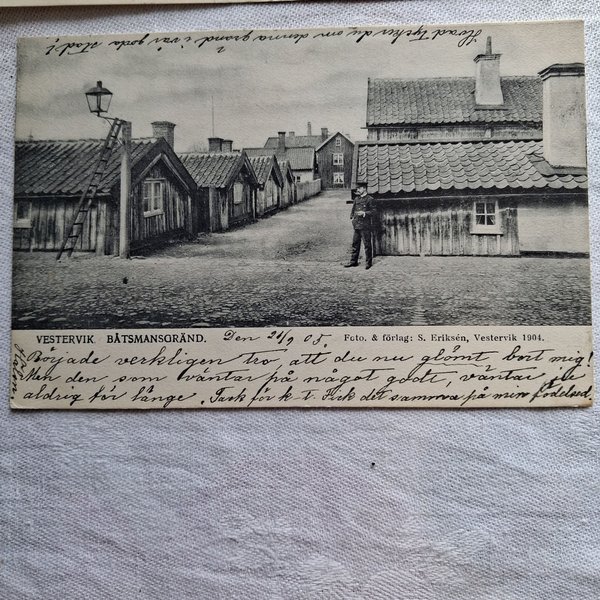 Hvad tycker du om denna gränd i vår goda stad?
VESTERVIK. BÅTSMANSGRÄND. Den 21/9 05. Foto. & förlag: S. Eriksén, Vestervik 1904.
Började verkligen tro att du nu glömt bort mig!
Men den som väntar på något godt, väntar ju
aldrig för länge. Tack för k-t. Fick det samma på min födelsed.